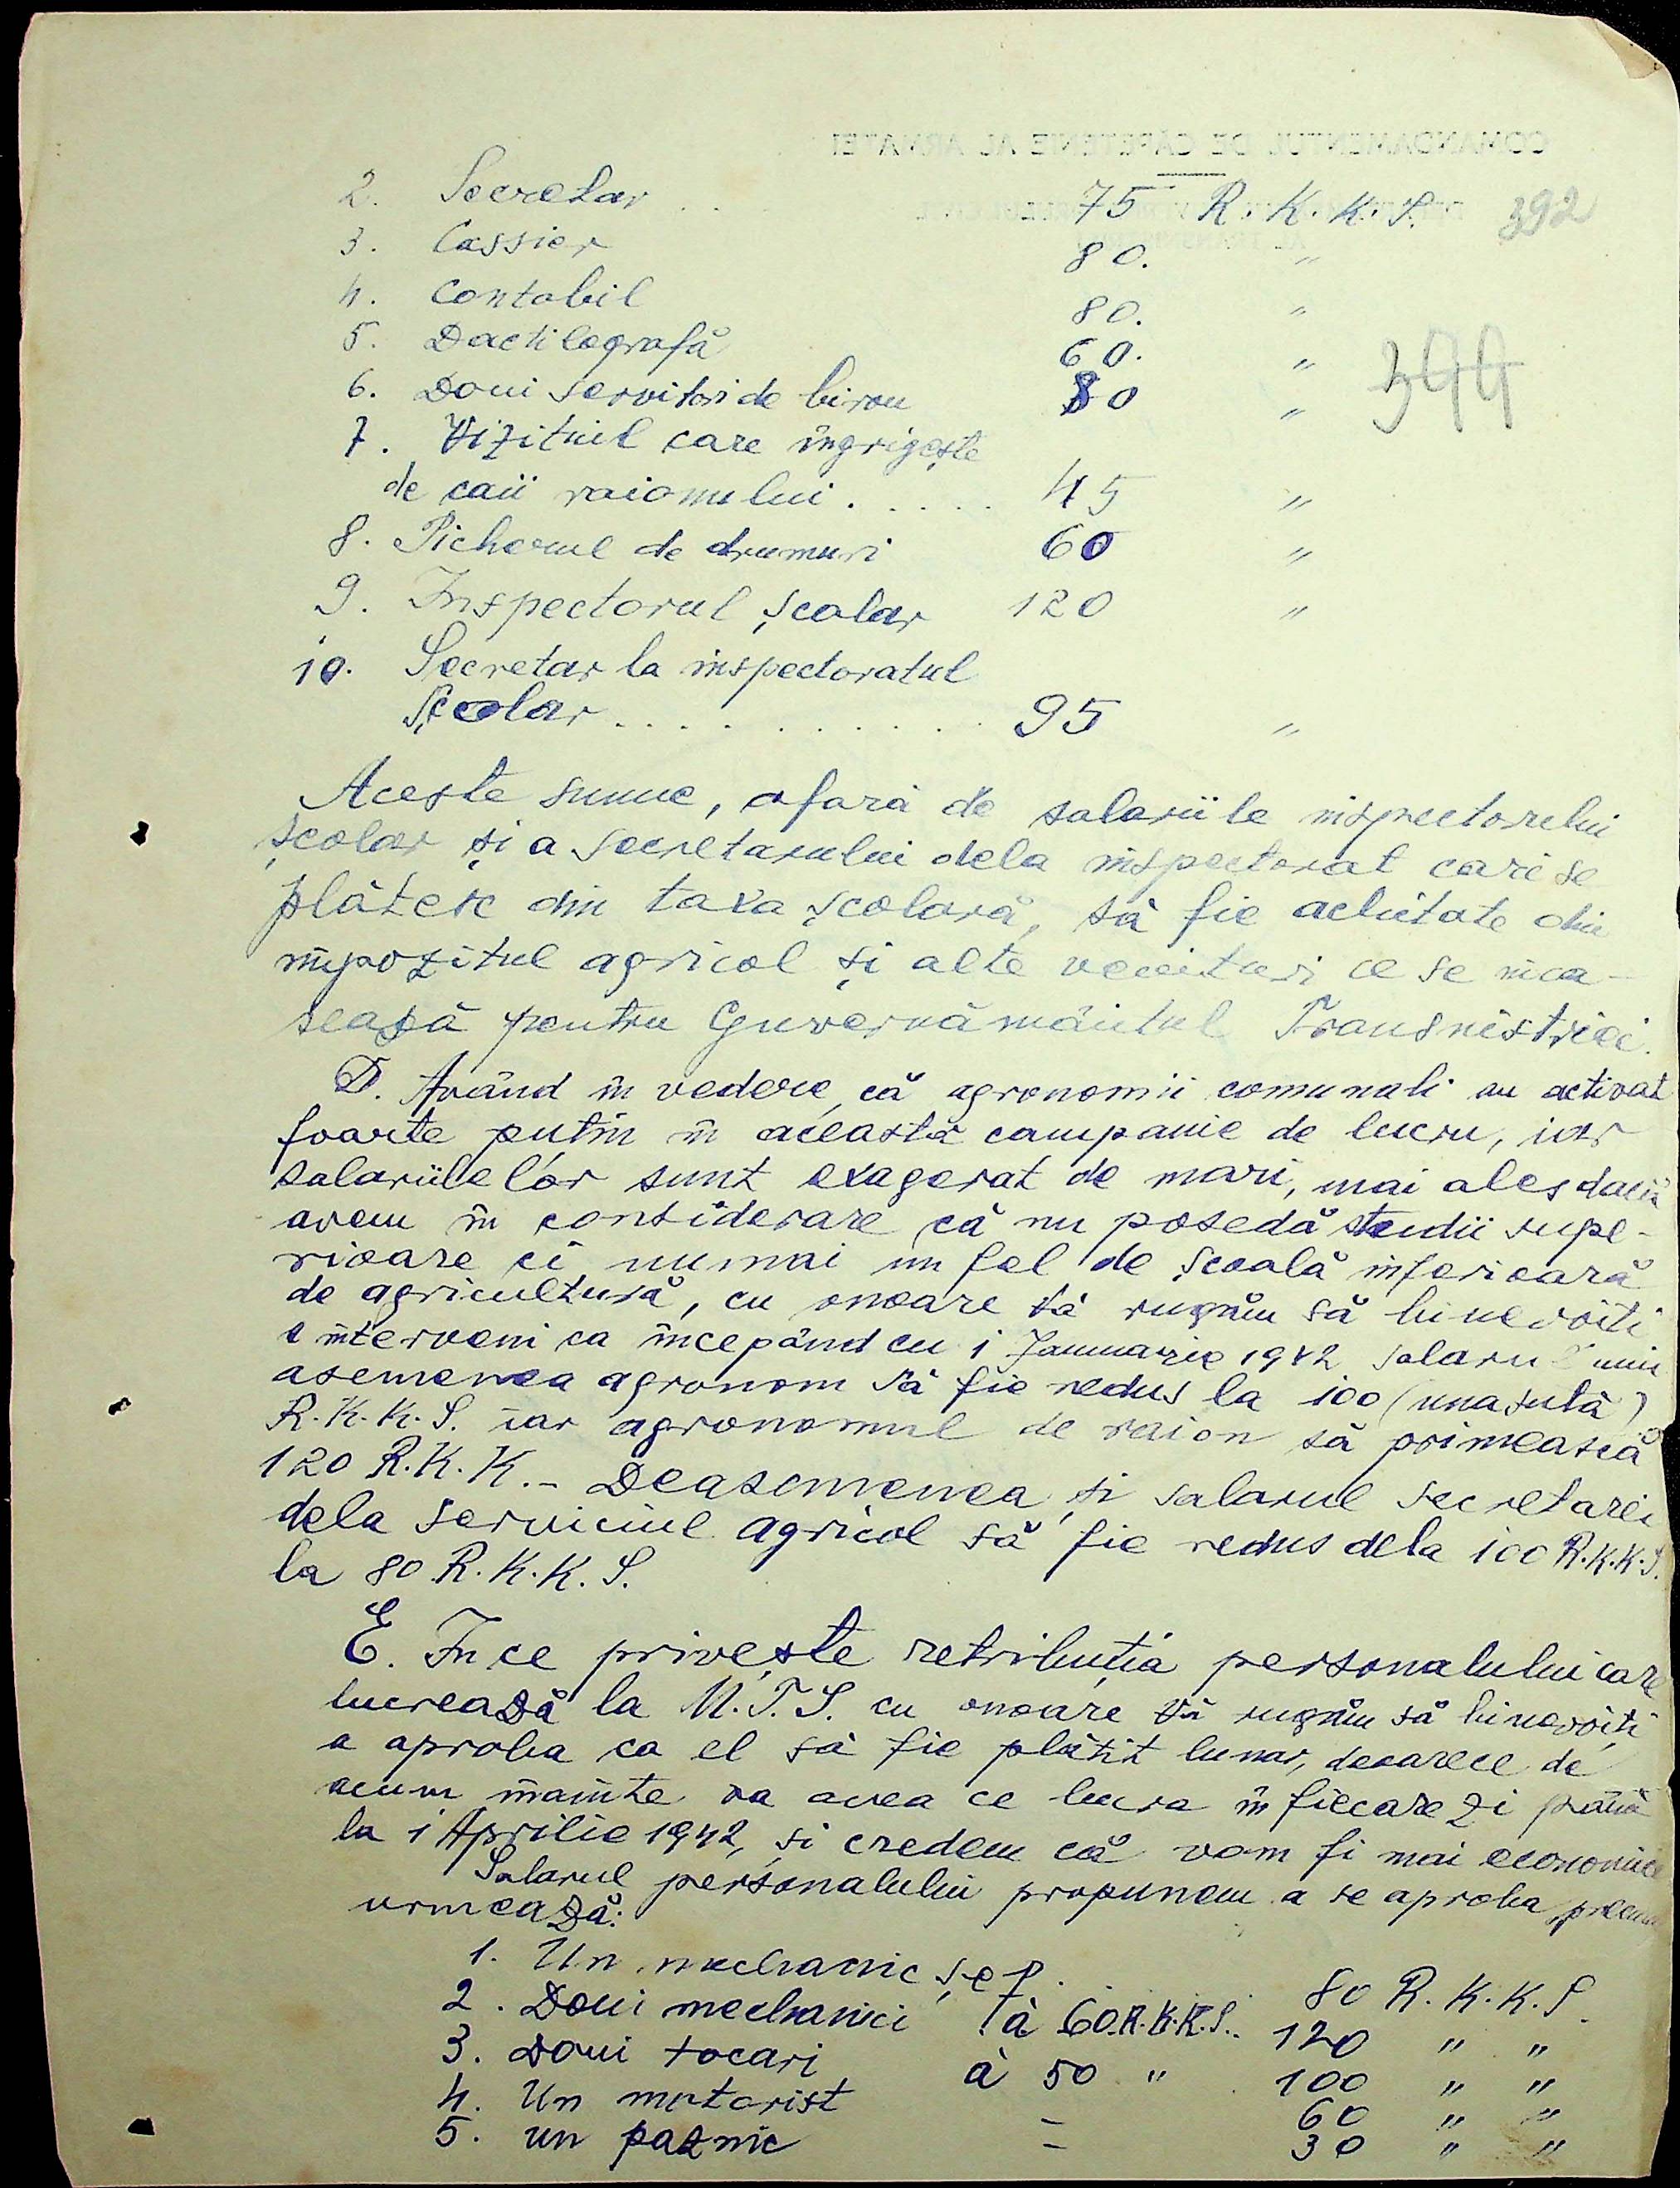 2. Secretar . . 75 R. K. K. S. 392
3. Cassier 80. "
4. Contabil 80. "
5. Dactilografă 60. "
399
6. Doui servitori de birou 80 "
7. Vizitiul care îngrigește
de caii raionului . . . . . 45 "
8. Picherul de drumuri 60 "
9. Inspectorul școlar 120 "
10. Secretar la inspectoratul
Școlar . . . . . . . . . 95 "
Aceste sume, afară de salariile inspectorului
școlar și a secretarului dela inspectorat cari se
plătesc din taxa școlară, să fie achitate din
impozitul agricol și alte venituri ce se înca-
sează pentru Guvernământul Transnistriei.
D. Având în vedere, că agronomii comunali au activat
foarte puțin în această campanie de lucru, iar
salariile lor sunt exagerat de mari, mai ales dacă
avem în considerare că nu posedă studii supe-
rioare ci numai un fel de școală inferioară
de agricultură, cu onoare vă rugăm să binevoiți
a interveni ca începând cu 1 Januarie 1942 salarul unui
asemenea agronom să fie redus la 100 (una sută)
R.K.K.S. iar agronomul de raion să primească
120 R.K.K.- Deasemenea și salarul secretarei
dela serviciul agricol să fie redus dela 100 R.K.K.S.
la 80 R.K.K.S.
E. In ce privește retribuția personalului care
lucrează la M.T.S. cu onoare vă rugăm să binevoiți
a aproba ca el să fie plătit lunar, deoarece de
acum înainte va avea ce lucra în fiecare zi până
la 1 Aprilie 1942, și credem că vom fi mai economici
Salarul personalului propunem a se aproba, precum
urmează:
1. Un mechanic șef . . 80 R. K. K. S.
2. Doui mechanici à 60 R.K.K.S.. 120 " "
3. Doui tocari à 50 " . 100 " "
4. Un motorist - 60 " "
5. un paznic - 30 " "